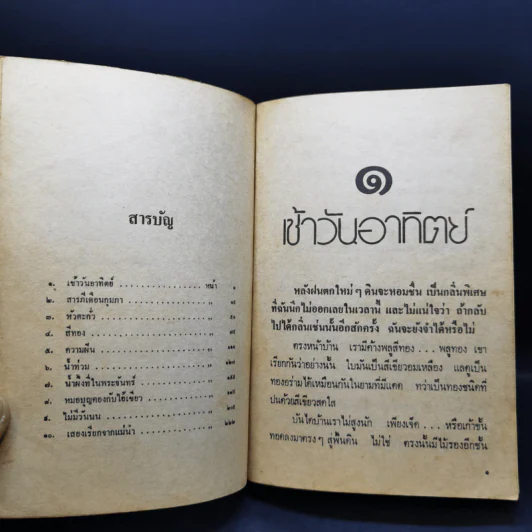 สารบัญ
๑. เช้าวันอาทิตย์ หน้า ๑
๒. สารภีเดือนกุมภา "
๓. หัวตะกั่ว "
๔. สีทอง "
๕. ความฝัน "
๖. น้ำท่วม "
๗. น้ำผึ้งที่ในพระจันทร์ "
๘. หมอบุญคองกับไอ้เขียว "
๙. ไม่มีวันนน "
๑๐. เสียงเรียกจากแม่น้ำ "
๑
เช้าวันอาทิตย์
หลังฝนตกใหม่ ๆ ดินจะหอมชื่น เป็นกลิ่นพิเศษ
ที่ฉันนึกไม่ออกเลยในเวลานี้ และไม่แน่ใจว่า ถ้ากลับ
ไปได้กลิ่นเช่นนั้นอีกสักครั้ง ฉันจะยังจำได้หรือไม่
ตรงหน้าบ้าน เรามีค้างพลูสีทอง . . . พลูทอง เขา
เรียกกันว่าอย่างนั้น ใบมันเป็นสีเขียวอมเหลือง แลดูเป็น
ทองอร่ามได้เหมือนกันในยามที่มีแดด ทว่าเป็นทองชนิดที่
ปนด้วยสีเขียวสดใส
บันไดบ้านเราไม่สูงนัก เพียงเจ็ด . . . หรือเก้าขั้น
ทอดลงมาตรง ๆ สู่พื้นดิน ไม่ใช่ ตรงนั้นมีไม้รองอีกชั้น